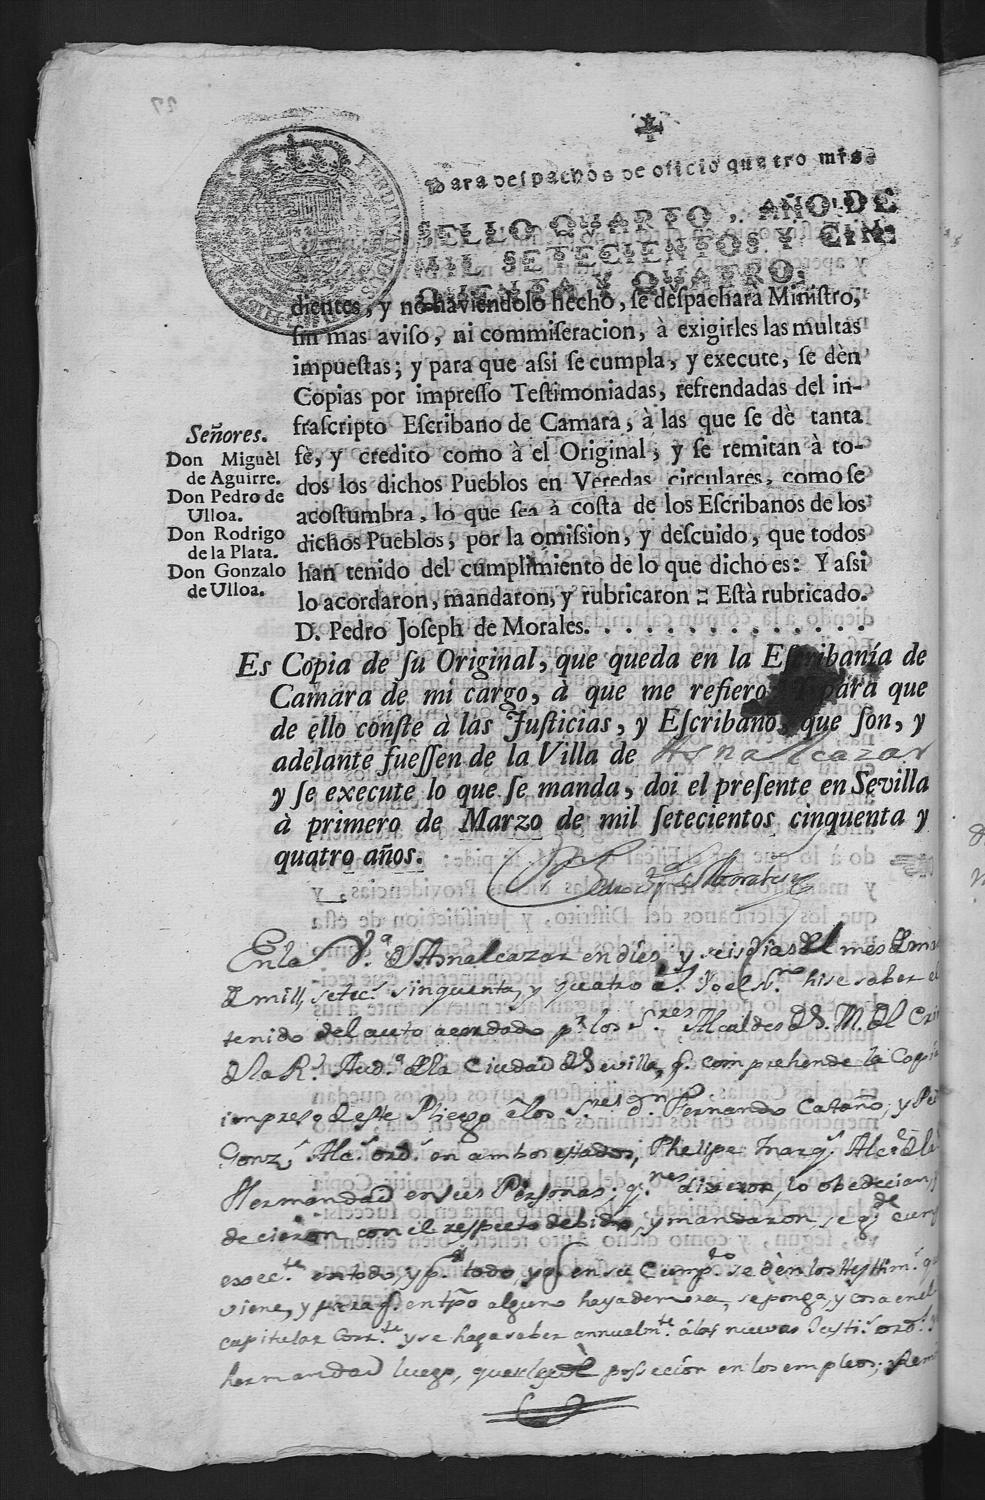 Para despachos de oficio quatro mrs.
SELLO QUARTO, AÑO DE
MIL SETECIENTOS Y CIN-
QUENTA Y QUATRO.
dientes, y no haviendolo hecho, se despacharà Ministro,
sin mas aviso, ni commiseracion, à exigirles las multas
impuestas; y para que assi se cumpla, y execute, se dèn
Copias por impresso Testimoniadas, refrendadas del in-
frascripto Escribano de Camara, à las que se dè tanta
fè, y credito como à el Original, y se remitan à to-
dos los dichos Pueblos en Veredas circulares, como se
acostumbra, lo que sea à costa de los Escribanos de los
dichos Pueblos, por la omission, y descuido, que todos
han tenido del cumplimiento de lo que dicho es: Y assi
lo acordaron, mandaron, y rubricaron :: Està rubricado.
D. Pedro Joseph de Morales. . . . . . . . . . . . . .
Señores.
Don Miguèl
de Aguirre.
Don Pedro de
Ulloa.
Don Rodrigo
de la Plata.
Don Gonzalo
de Ulloa.
Es Copia de su Original, que queda en la Escribanía de
Camara de mi cargo, à que me refiero. Y para que
de ello conste à las Justicias, y Escribano, que son, y
adelante fuessen de la Villa de Asnalcazar
y se execute lo que se manda, doi el presente en Sevilla
à primero de Marzo de mil setecientos cinquenta y
quatro años.
Pedro Jph de Morales
En la V.ª de Asnalcazar en dies, y seis dias del mes de
de mill, setec.s sinquenta, y quatro a.s Yo el s.no hise saber el
tenido del auto acordado p.r los s.res Alcaldes de S. M. del
de la R.l Aud.ª de la Ciudad de Sevilla, q. comprehende la Copia
impresa de este Pliego a los s.res d.n Fernando Cataño, y
Gonz.s Alc.s ord.s en ambos estados, Phelipe Marq.s Alc.e de la
Hermandad en sus Personas, q.nes dixeron, lo obedecian, y
decieron con el respecto debido, y mandaron, se g.de
exec.te en todo, y p.r todo y q. en su Cump.to se dèn los testim.s
viene, y para q. en tpo alguno haya demora, se ponga, y cosa en el
capitular Corr.te y se haga saber annualm.te á las nuevas Justi.s ord.s
hermandad luego, que se les dè possecion en los empleos;